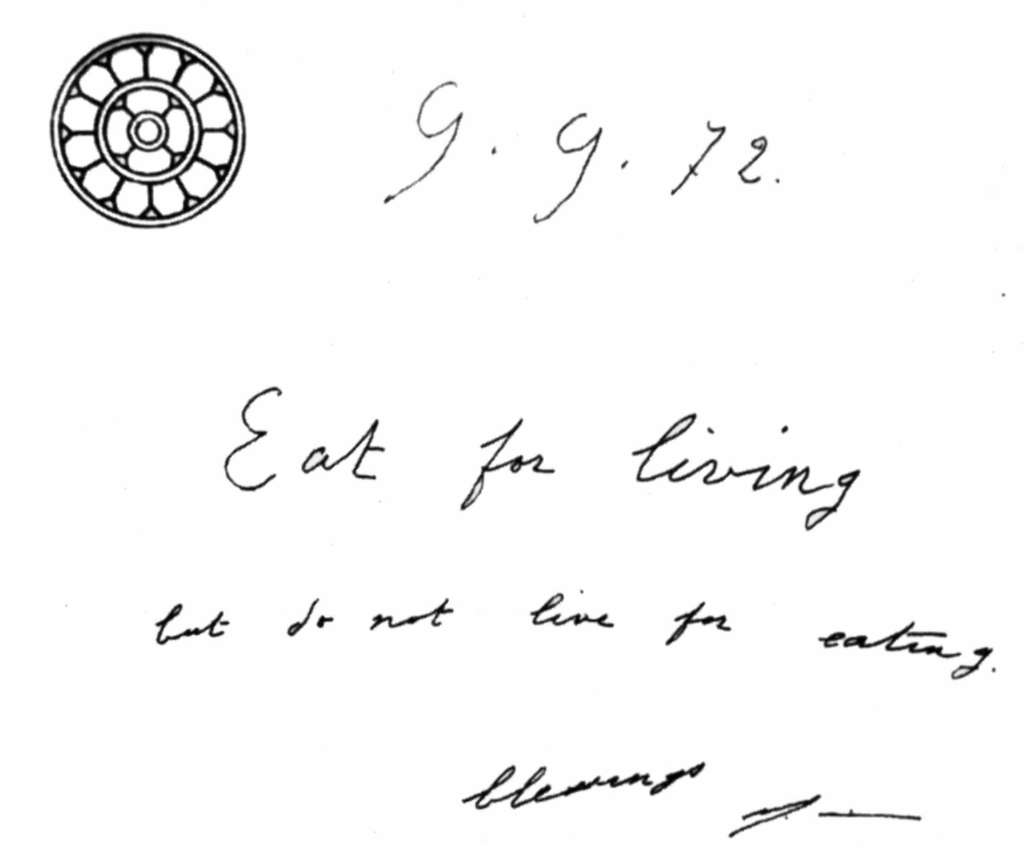 9. 9. 72.
Eat for living
but do not live for eating.
blessings